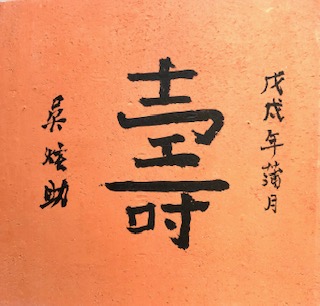 戊戌年蒲月
壽
吳炫助